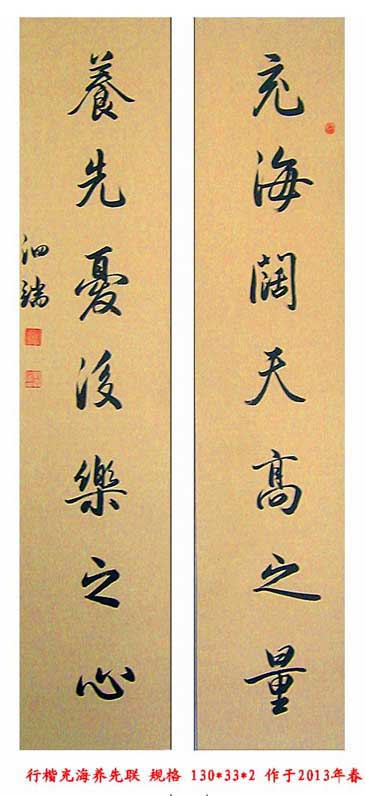 充海阔天高之量
養先憂後樂之心
泗瑞
行楷充海养先联 规格 130*33*2 作于2013年春